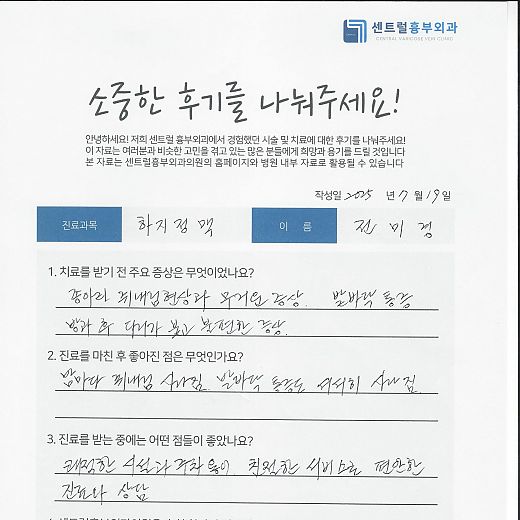 센트럴흉부외과
CENTRAL VARICOSE VEIN CLINIC
소중한 후기를 나눠주세요!
안녕하세요! 저희 센트럴 흉부외과에서 경험했던 시술 및 치료에 대한 후기를 나눠주세요!
이 자료는 여러분과 비슷한 고민을 겪고 있는 많은 분들에게 희망과 용기를 드릴 것입니다
본 자료는 센트럴흉부외과의원의 홈페이지와 병원 내부 자료로 활용될 수 있습니다
작성일 2025 년 7 월 19 일
진료과목 하지정맥 이 름 전미경
1. 치료를 받기 전 주요 증상은 무엇이었나요?
종아리 쥐내림현상과 무거운 증상. 발바닥 통증
방과 후 다리가 붓고 불편한 증상.
2. 진료를 마친 후 좋아진 점은 무엇인가요?
밤마다 쥐내림 사라짐. 발바닥 통증도 서서히 사라짐.
3. 진료를 받는 중에는 어떤 점들이 좋았나요?
쾌적한 시설과 주차 용이. 친절한 서비스로 편안한
진료와 상담